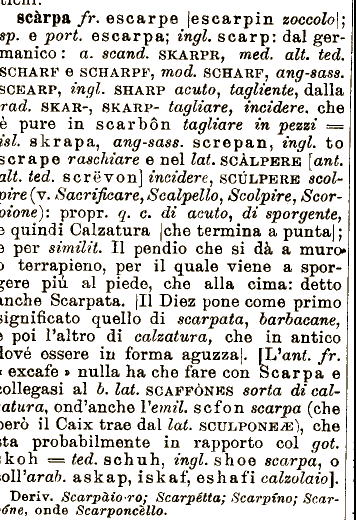 scàrpa fr. escarpe |escarpin zoccolo|;
sp. e port. escarpa; ingl. scarp: dal ger-
manico: a. scand. SKARPR, med. alt. ted.
SCHARF e SCHARPF, mod. SCHARF, ang-sass.
SCEARP, ingl. SHARP acuto, tagliente, dalla
rad. SKAR-, SKARP- tagliare, incidere. che
è pure in scarbôn tagliare in pezzi =
isl. skrapa, ang-sass. screpan, ingl. to
scrape raschiare e nel lat. SCÀLPERE [ant.
alt. ted. scrëvon] incidere, SCÚLPERE scol-
pire (v. Sacrificare, Scalpello, Scolpire, Scor-
pione): propr. q. c. di acuto, di sporgente,
e quindi Calzatura |che termina a punta|;
e per similit. Il pendio che si dà a muro
o terrapieno, per il quale viene a spor-
gere più al piede, che alla cima: detto
anche Scarpata. |Il Diez pone come primo
significato quello di scarpata, barbacane,
e poi l'altro di calzatura, che in antico
dové essere in forma aguzza|. [L'ant. fr.
« excafe » nulla ha che fare con Scarpa e
collegasi al b. lat. SCAFFÒNES sorta di cal-
zatura, ond'anche l'emil. scfon scarpa (che
però il Caix trae dal lat. SCULPONEÆ), che
sta probabilmente in rapporto col got.
skoh = ted. schuh, ingl. shoe scarpa, o
coll'arab. askap, iskaf, eshafi calzolaio].
Deriv. Scarpàio-ro; Scarpétta; Scarpíno; Scar-
póne, onde Scarponcèllo.